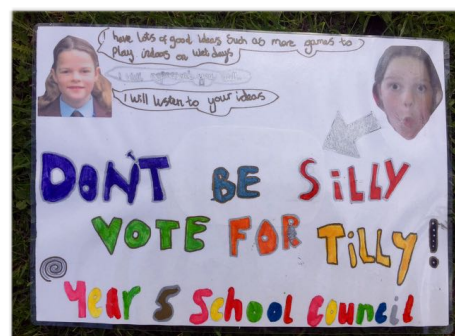 I have lots of good ideas such as more games to
play indoors on wet days
I will listen to your ideas
DON'T BE SiLLY
VOTE FOR TiLLY!
Year 5 School Council